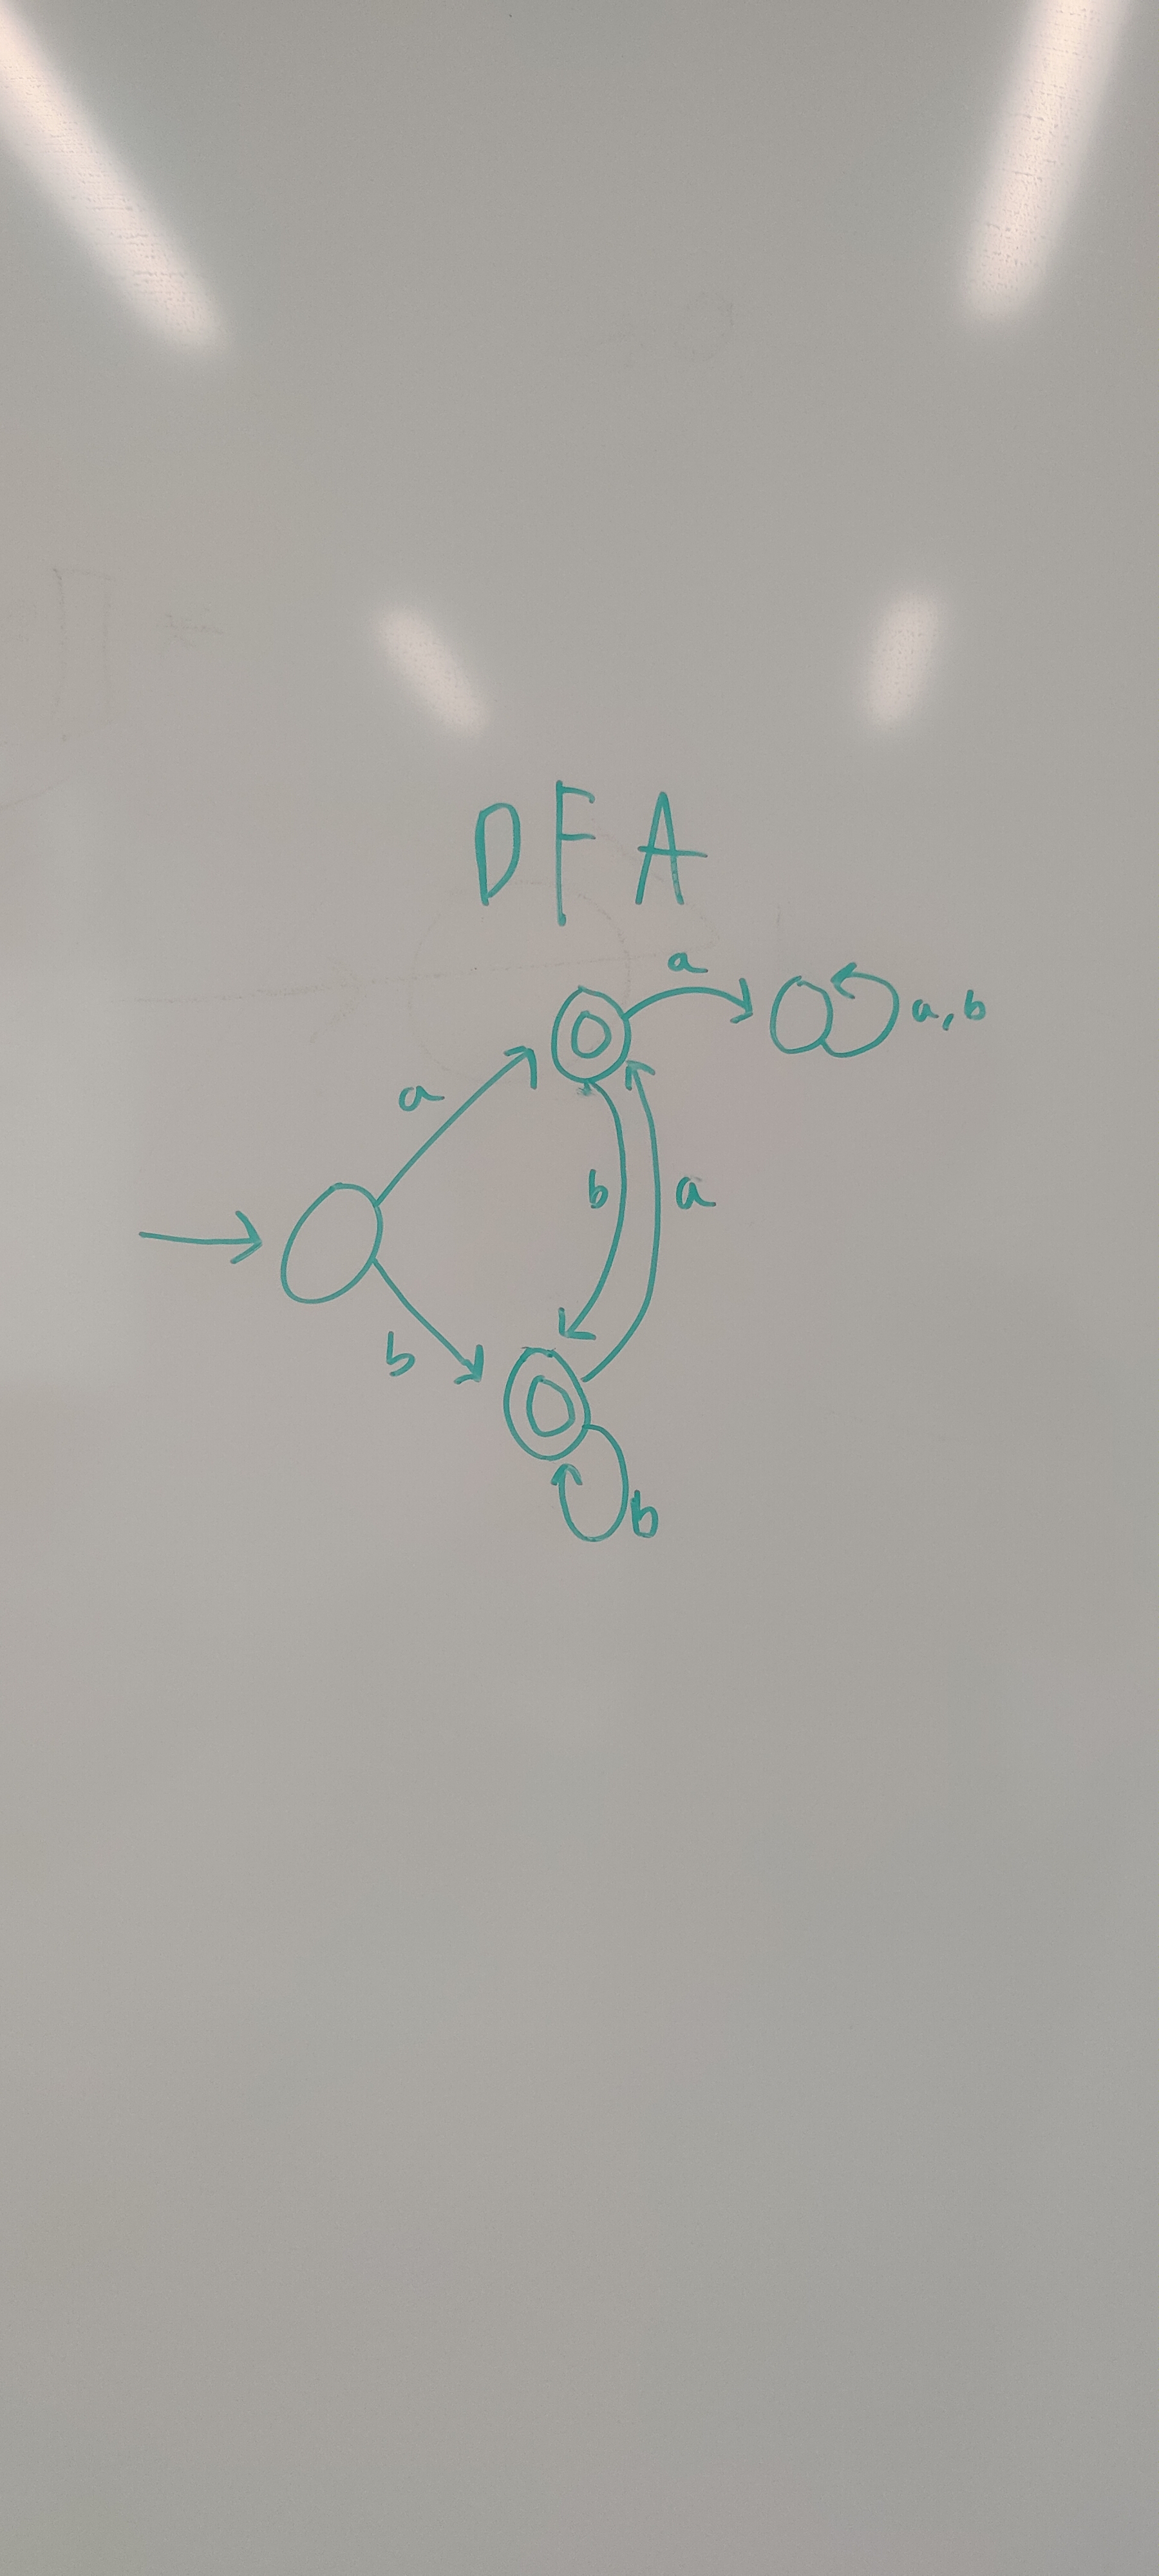 DFA
a
a, b
a
b
a
b
b